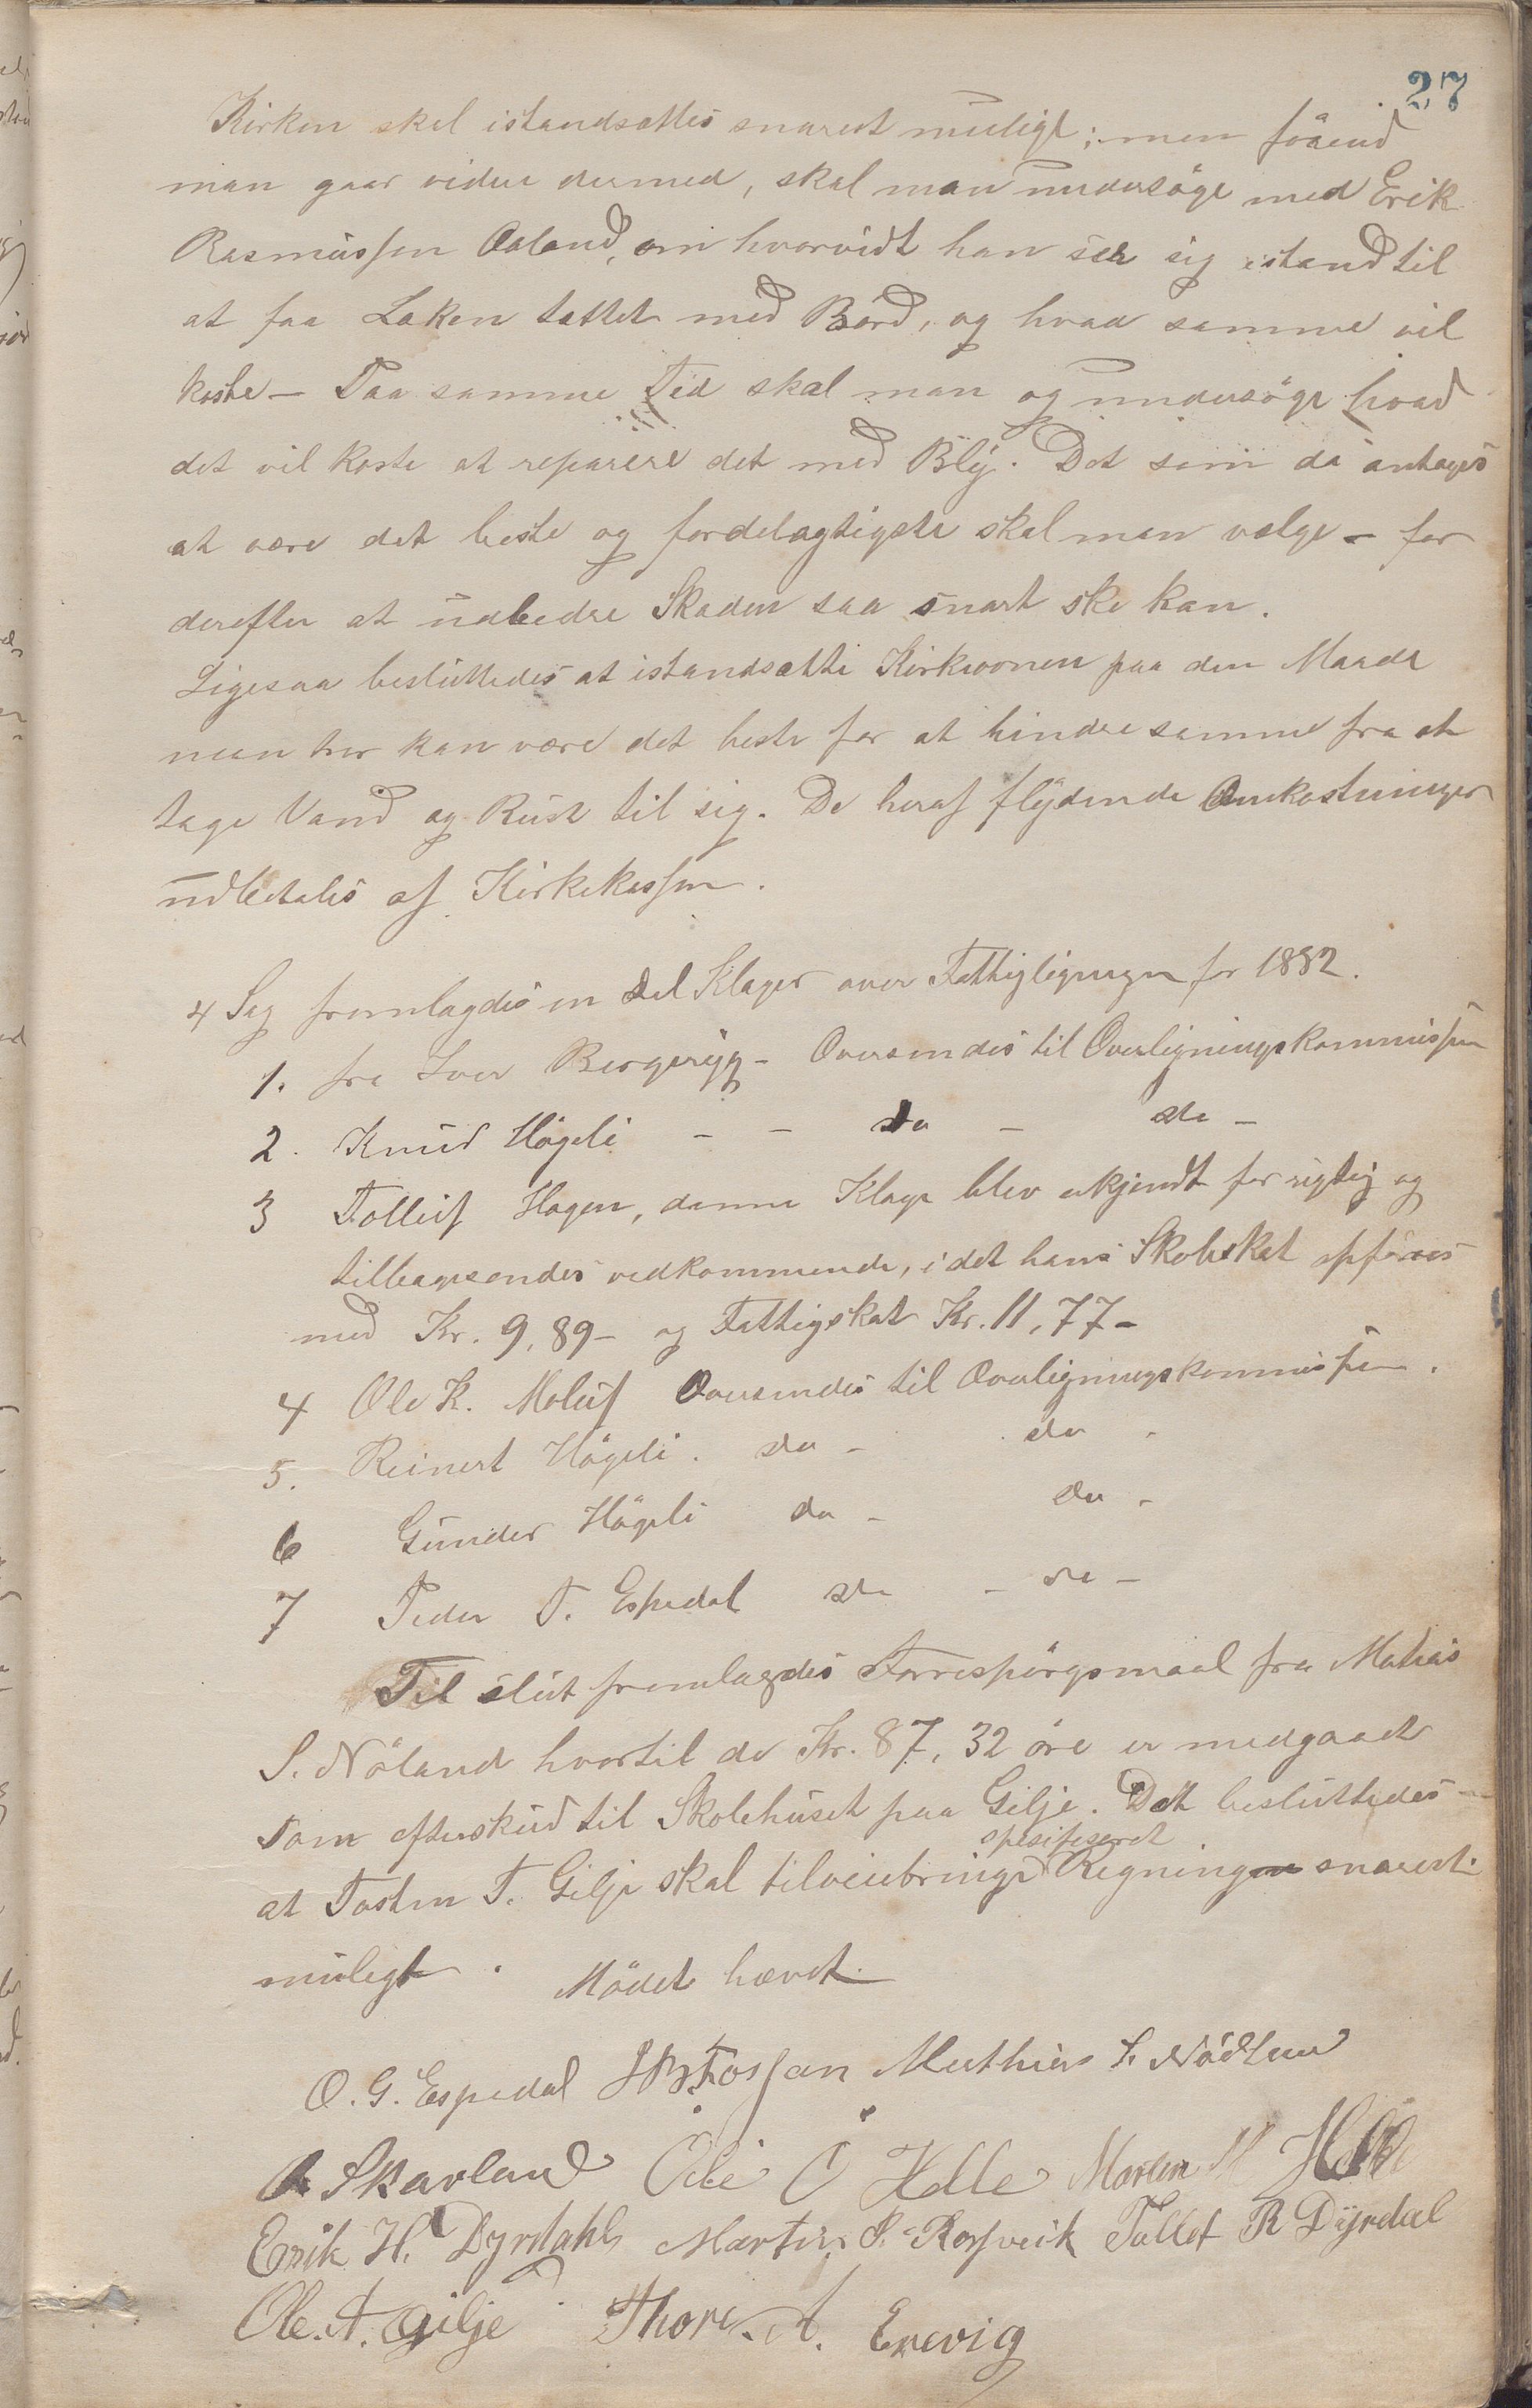 27
Kirken skal istandsættes snarest muligt; men förend
man gaar videre dermed, skal man undersöge med Erik
Rasmussen Aaland, om hvorvidt han ser sig istand til
at faa Laken tættet med Bord, og hvad samme vil
koste — Paa samme Tid skal man og undersöge hvad
det vil koste at reparere det med Bly. Det som da antages
at være det beste og fordelagtigste skal man vælge — for
derefter at udbedre Skaden saa snart ske kan.
Ligesaa besluttedes at istandsætte Kirkeovnen paa den Maade
man tror kan være det beste for at hindre samme fra at
tage Vand og Rust til sig. De heraf flydende Omkostninger
udbetales af Kirkekassen.
4 Sag fremlagdes en Del Klager over Fattigligningen for 1882.
1. fra Iver Bergeryg - Oversendes til Overligningskommissjon
2. Knud Högeli - - do - do -
3 Tolleif Hagen, denne Klage blev erkjendt for rigtig og
tilbagesendes vedkommende, i det hans Skoleskat opföres
med Kr. 9,89 - og Fattigskat Kr. 11,77 -
4 Ole K. Moluf Oversendes til Overligningskommissjon.
5. Reinert Högeli. do - do -
6 Gunder Högeli do - do -
7 Peder T. Espedal do - do -
Til slut fremlagdes Forrespörgsmaal fra Mathias
S. Nöland hvortil de Kr. 87,32 öre er medgaaet
som efterskud til Skolehuset paa Gilje. Det besluttedes
at Tosten T. Gilje skal tilveiebringe spesifiseret Regningen snarest
muligt. Mödet hævet.
O. G. Espedal H B Fossan Mathias S. Nödland
A Skavland Ole O Helle Morten M Helle
Erik H. Dyrdahl Martin S. Rosseveik Tollef R Dyrdal
Ole. T. Gilje Thore. A. Erevig